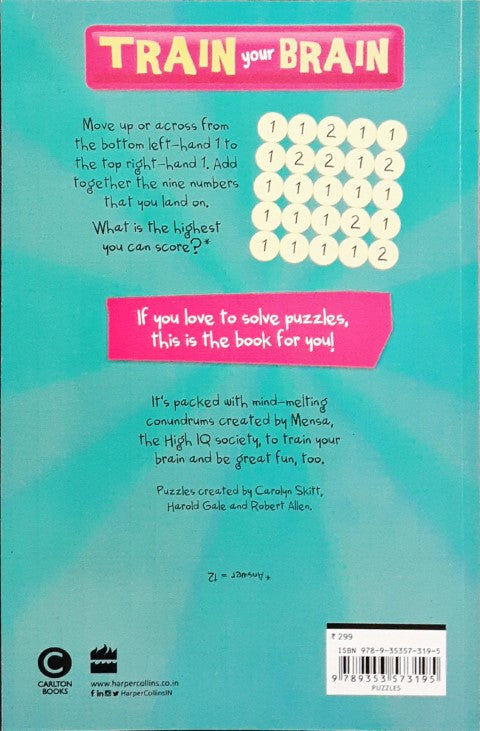 TRAIN your BRAIN
Move up or across from
the bottom left-hand 1 to
the top right-hand 1. Add
together the nine numbers
that you land on.
What is the highest
you can score?*
1 1 2 1 1
1 2 2 1 2
1 1 1 1 1
1 1 1 2 1
1 1 1 1 2
If you love to solve puzzles,
this is the book for you!
It's packed with mind-melting
conundrums created by Mensa,
the High IQ society, to train your
brain and be great fun, too.
Puzzles created by Carolyn Skitt,
Harold Gale and Robert Allen.
*Answer = 12
C
CARLTON
BOOKS
www.harpercollins.co.in
HarperCollinsIN
₹ 299
ISBN 978-9-35357-319-5
9 789353 573195
PUZZLES